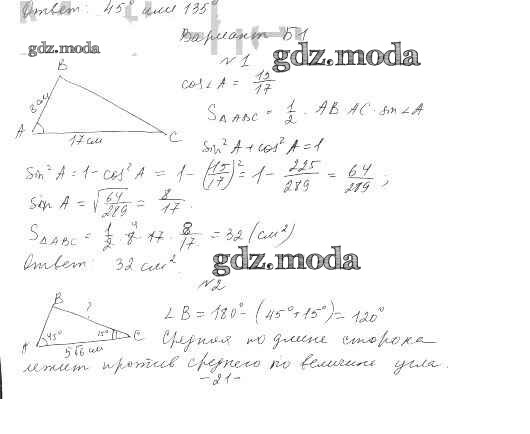 Ответ: 45° или 135°
Вариант Б1
gdz.moda
№1
gdz.moda
B
8 см
A
17 см
C
cos∠A = 15/17
S△ABC = 1/2 · AB · AC · sin∠A
sin²A + cos²A = 1
sin²A = 1 - cos²A = 1 - (15/17)² = 1 - 225/289 = 64/289 ;
sin A = √64/289 = 8/17 .
S△ABC = 1/2 · 8 · 17 · 8/17 = 32 (см²)
Ответ: 32 см².
gdz.moda
№2
B
?
A
45°
15°
C
5√6 см
∠B = 180° - (45° + 15°) = 120°
Средняя по длине сторона
лежит против среднего по величине угла.
-21-